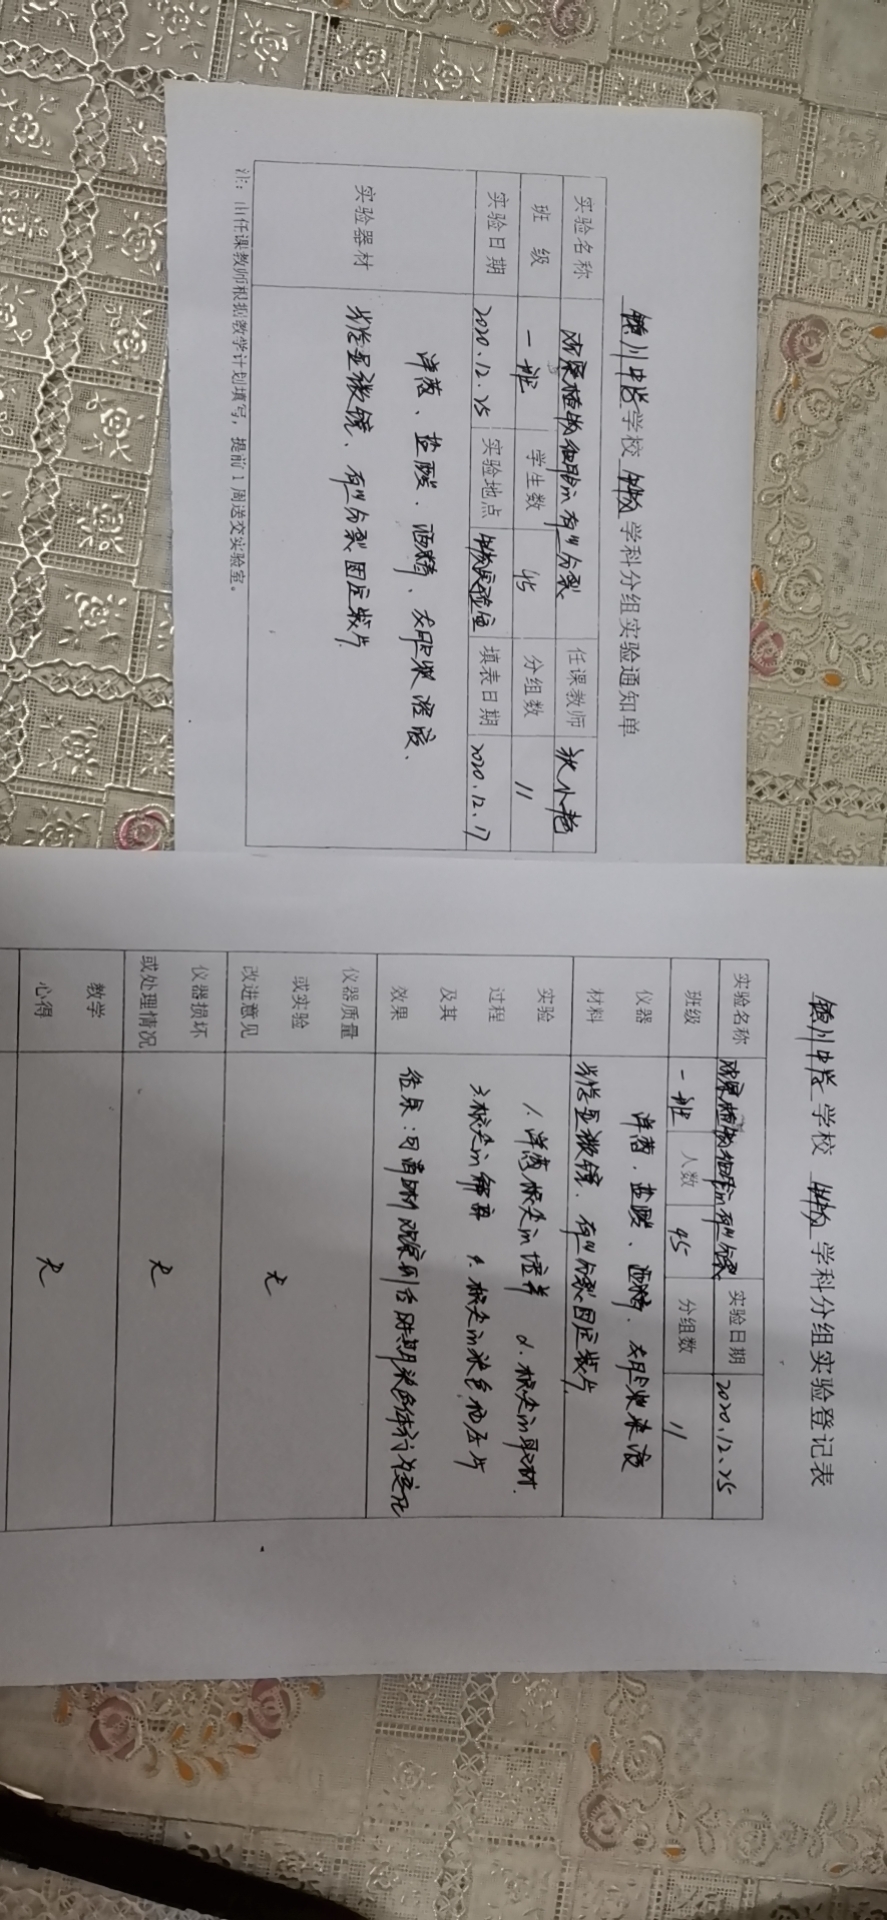 镇川中学学校 生物 学科分组实验通知单
实验名称 观察植物细胞的有丝分裂 任课教师
班 级 一班 学生数 45 分组数 11
实验日期 2020.12.25 实验地点 生物实验室 填表日期 2020.12.17
洋葱、盐酸、酒精、龙胆紫溶液、
实验器材 光学显微镜、有丝分裂固定装片
注：由任课教师根据教学计划填写，提前1周送交实验室。
镇川中学 学校 生物 学科分组实验登记表
实验名称 观察植物细胞的有丝分裂 实验日期 2020.12.25
班级 一班 人数 45 分组数 11
仪器 洋葱、盐酸、酒精、龙胆紫染液
材料 光学显微镜、有丝分裂固定装片
实验 1.洋葱根尖的培养 2.根尖的取材
过程 3.根尖的解离 4.根尖的染色和压片
及其
效果 结果：可清晰观察到各时期染色体行为变化
仪器质量
或实验 无
改进意见
仪器损坏
或处理情况 无
教学
心得 无